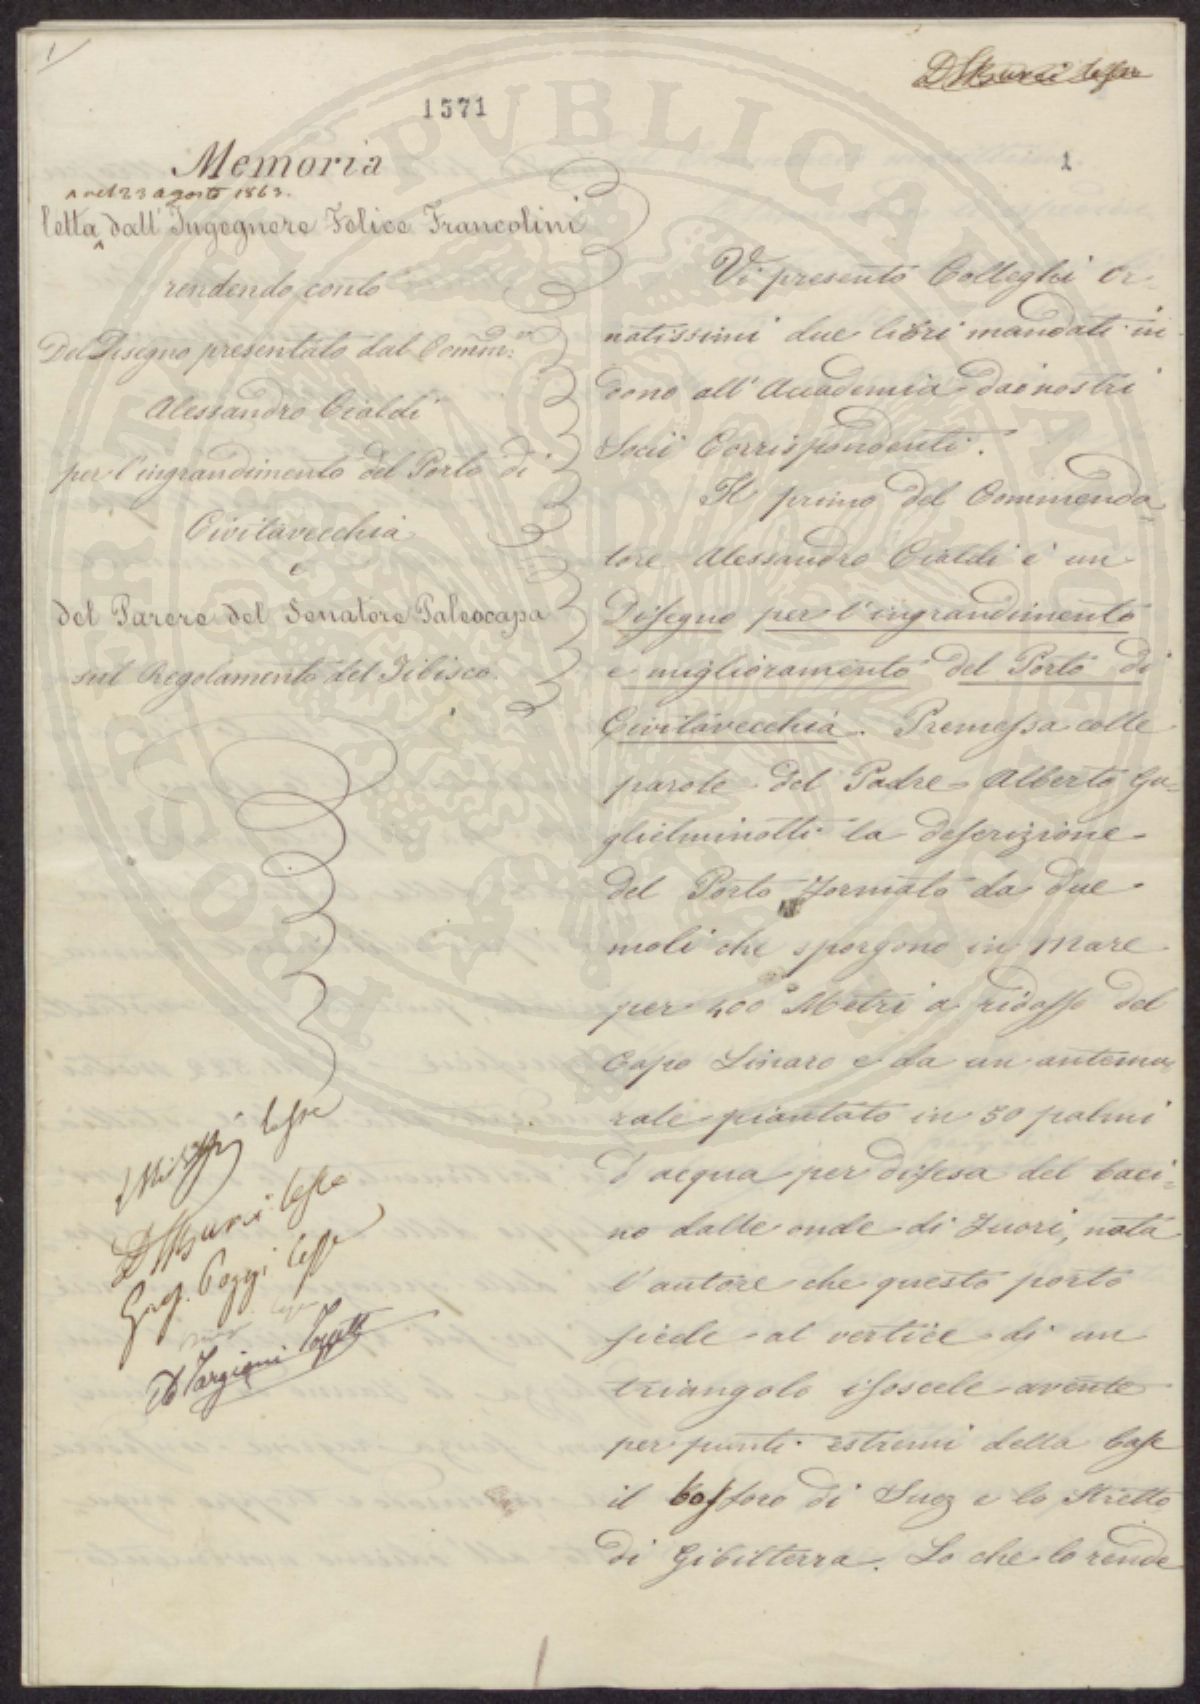 1
1571
Memoria
nel 23 agosto 1863.
letta dall'Ingegnere Felice Francolini
rendendo conto
Del Disegno presentato dal Comm:
Alessandro Cialdi
per l'ingrandimento del Porto di
Civitavecchia
e
del Parere del Senatore Paleocapa
sul Regolamento del Tibisco.
lesse
lesse
Poggi lesse
Targioni Tozzetti
1
Vi presento Colleghi Or-
natissimi due libri mandati in
dono all'Accademia dai nostri
Socii Corrispondenti.
Il primo del Commenda-
tore Alessandro Cialdi è un
Disegno per l'ingrandimento
e miglioramento del Porto di
Civitavecchia. Premessa colle
parole del Padre Alberto Gu-
glielminotti la descrizione
del Porto formato da due
moli che sporgono in Mare
per 400 Metri a ridosso del
Capo Linaro e da un antemu-
rale piantato in 50 palmi
d'acqua per difesa del baci-
no dalle onde di fuori, nota
l'autore che questo porto
siede al vertice di un
triangolo isoscele avente
per punti estremi della base
il bosforo di Suez e lo Stretto
di Gibilterra. Lo che lo rende